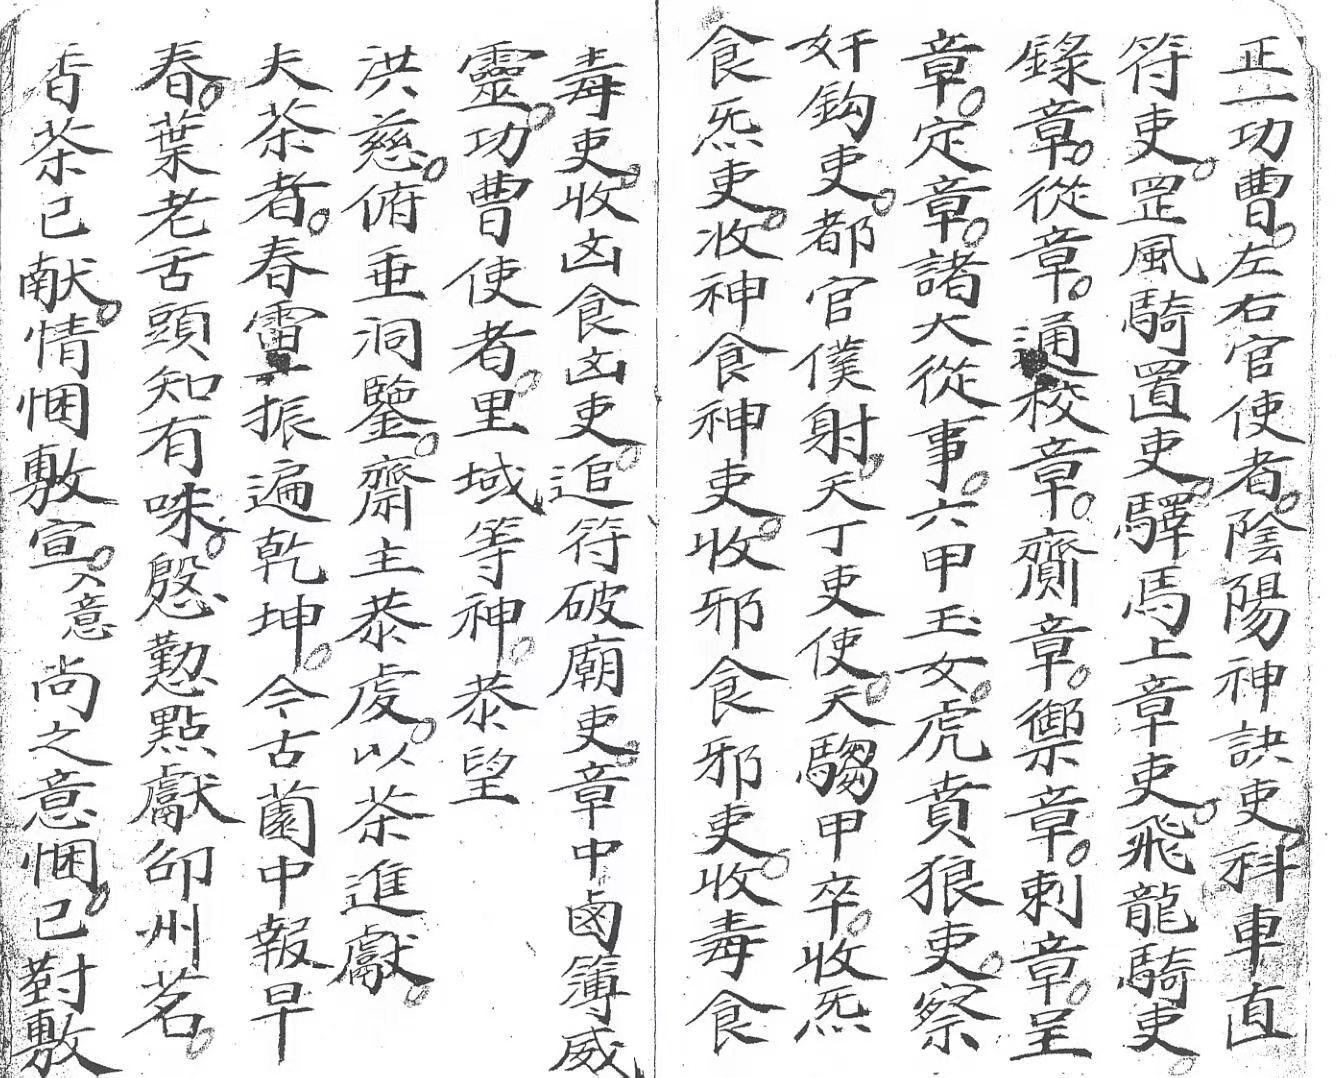 正一功曹。左右官使者。陰陽神訣吏。科車直
符吏。罡風騎置吏。驛馬上章吏。飛龍騎吏。
錄章。從章。通校章。齎章。禦章。刺章。呈
章。定章。諸大從事。六甲玉女。虎賁狼吏。察
奸鈎吏。都官僕射。天丁吏使。天騶甲卒。收炁
食炁吏。收神食神吏。收邪食邪吏。收毒食
毒吏。收凶食凶吏。追符破廟吏。章中鹵簿威
靈。功曹使者。里域等神。恭望
洪慈。俯垂洞鑒。齋主恭虔。以茶進獻。
夫茶者。春雷一振遍乾坤。今古園中報早
春。葉老舌頭知有味。慇懃點獻卭州茗。
香茶已献。情悃敷宣。入意尚之意悃。已對敷